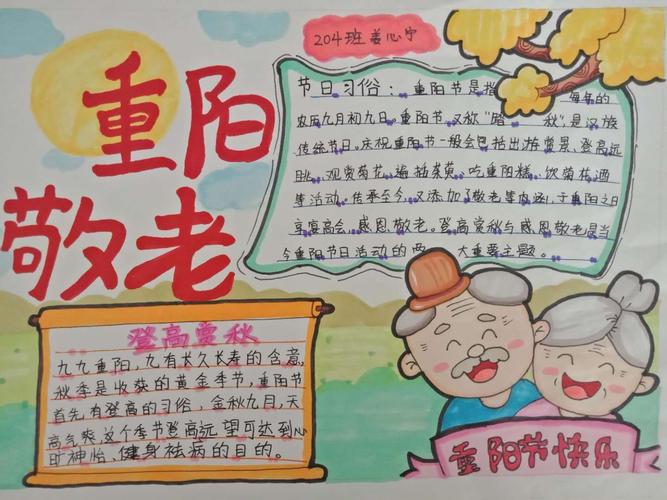 204班姜心宁
重阳
敬老
节日习俗：重阳节是指 每年的
农历九月初九日。重阳节，又称“踏 秋”，是汉族
传统节日。庆祝重阳节一般会包括出游赏景、登高远
眺、观赏菊花、遍插茱萸、吃重阳糕、饮菊花酒
等活动。传承至今，又添加了敬老等内涵，于重阳之日
享宴高会，感恩敬老。登高赏秋与感恩敬老是当
今重阳节日活动的两 大重要主题。
登高赏秋
九九重阳，九有长久长寿的含意，
秋季是收获的黄金季节，重阳节
首先有登高的习俗，金秋九月，天
高气爽这个季节登高远望可达到心
旷神怡、健身祛病的目的。
重阳节快乐